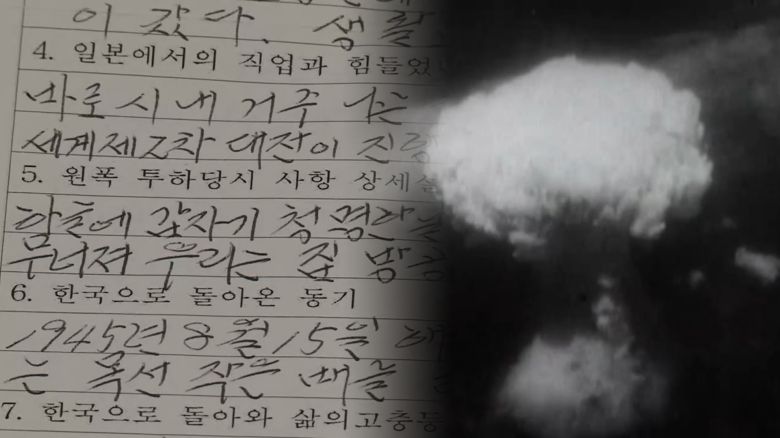 이 갔다. 생활
4. 일본에서의 직업과 힘들었
바로 시내 거주 나는
세계제2차 대전이 진행
5. 원폭 투하당시 사항 상세설
하늘에 갑자기 청명한 날
무너져 우리는 집 방공
6. 한국으로 돌아온 동기
1945년 8월 15일 해
는 목선 작은 배를
7. 한국으로 돌아와 삶의고충등